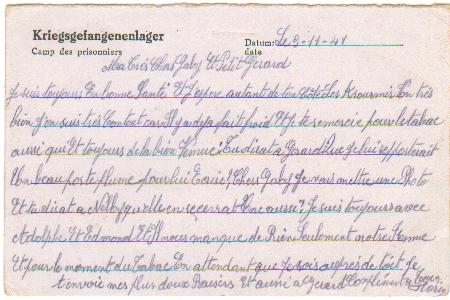 Kriegsgefangenenlager
Camp des prisonniers
Datum: Le 9-11-41
date
Ma Très Chers Gaby Et Petit Gerard
Je suis toujours En bonne Santé Et J'espere autant de ton Coté Les
bien J'en suis très Content car Il y a deja fait froid Et Je te remercie pour le tabac
aussi qui Et toujours de la bien Venue! Tu dirat a Gerard Que Je lui repporterait
Un beau porte plume pour lui Ecrire! Chers Gaby Je vais mettre une Photo
Et tu dirat a Nelly qu'elle en recevrat Une aussi! Je suis toujours avec
Adolphe Et Edmond Et Il nous manque de Rien Seulement notre femme
Et pour le moment du Tabac En attendant que Je sois aupres de toit Je
t'envoie mes plus doux Baisers Et aussi a Gerard Compliment a